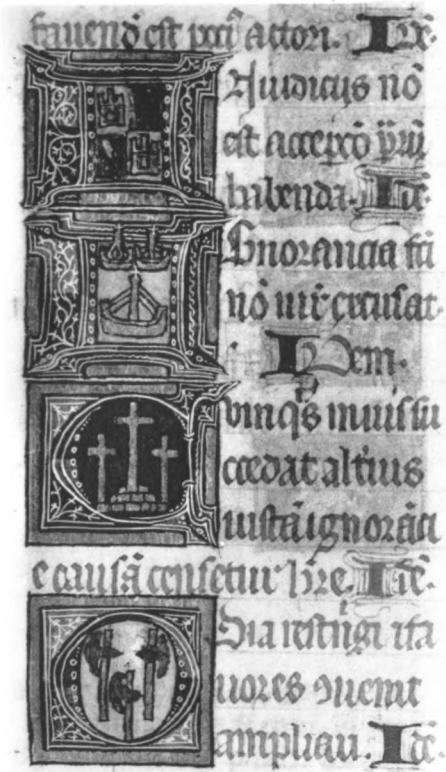 fauend est actori. Idē.
In iudicijs nō
est accepcō
habenda. Idē.
Ignorancia fci
nō iur̄ excusat.
Idem.
Cum q̄s in ius su
ccedat alt̄ius
iustā ignorāci
e causā censetur hr̄e. Idē.
Odia restrīgi
uores ꝯuenit
ampliari. Idē.